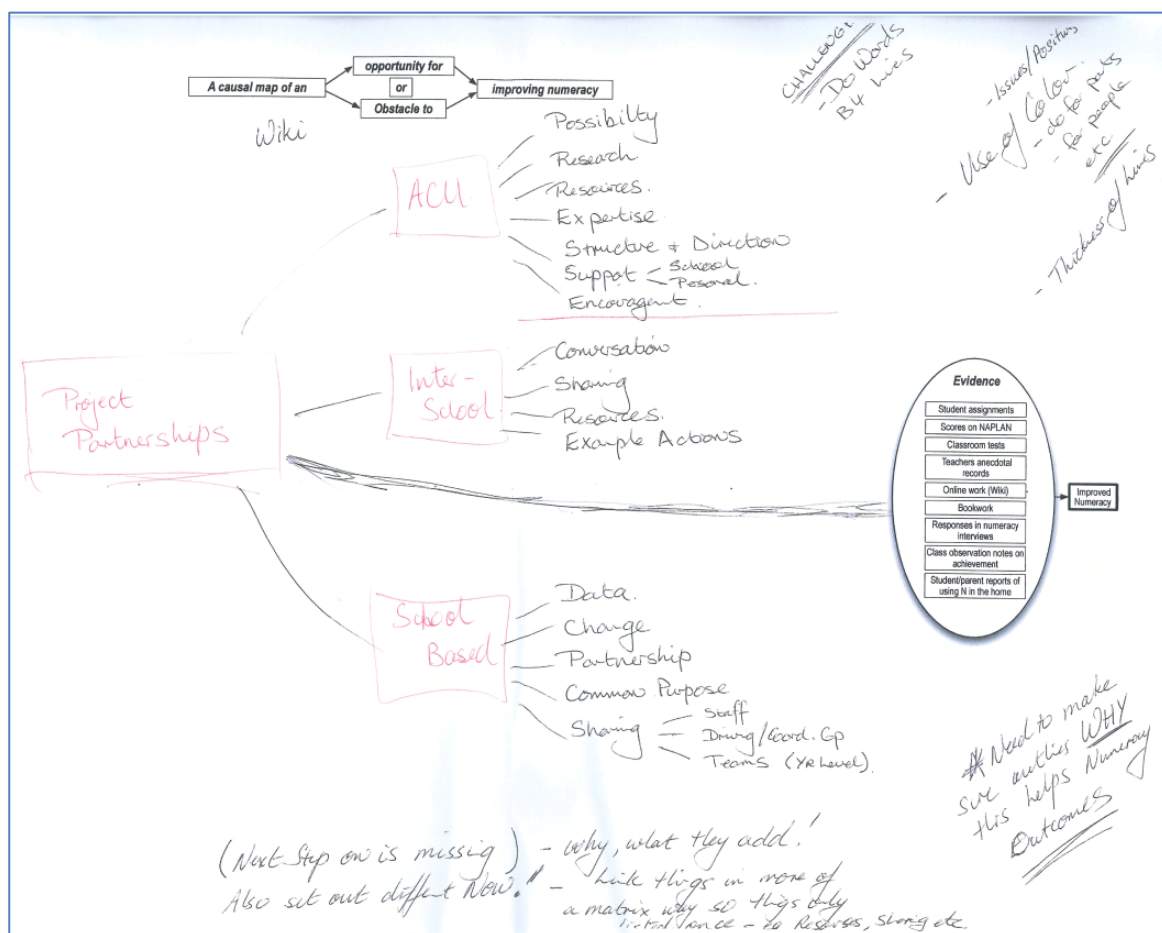 A causal map of an
opportunity for
or
Obstacle to
improving numeracy
Wiki
CHALLENGE
- Do Words
B4 Lines
- Issues/Positives
- Use of Color.
- do for parts
- for people
etc
- Thickness of Lines
Project
Partnerships
ACU
Possibilty
Research
Resources.
Expertise.
Structure + Direction
Support
School
Personal.
Encouragent.
Inter-
School
Conversation
Sharing
Resources.
Example Actions
School
Based
Data.
Change
Partnership
Common Purpose
Sharing
Staff
Driving/Coord. Gp
Teams (YR Level).
Evidence
Student assignments
Scores on NAPLAN
Classroom tests
Teachers anecdotal
records
Online work (Wiki)
Bookwork
Responses in numeracy
interviews
Class observation notes on
achievement
Student/parent reports of
using N in the home
Improved
Numeracy
* Need to make
sure outlies WHY
this helps Numeracy
Outcomes
(Next Step on is missing) - why, what they add!
Also set out diffent Now!! - Link things in more of
a matrix why so thigs only
once - eg Resources, sharing etc.